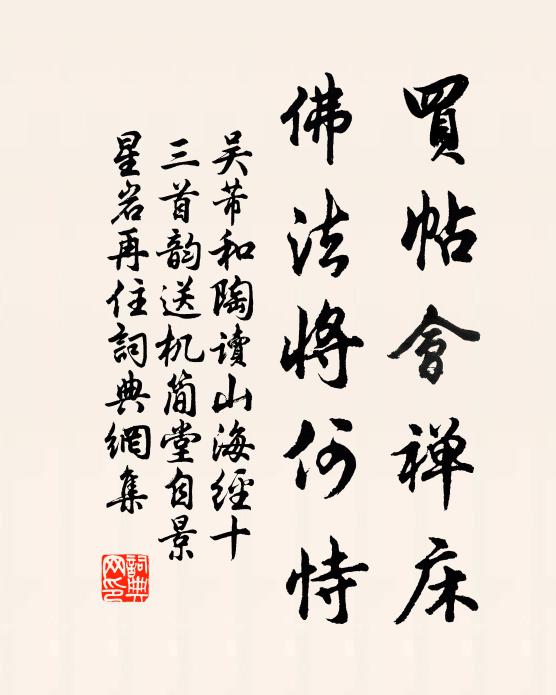 買帖會禅床
佛法將何恃
吴芾和陶讀山海經十
三首韵送机简堂自景
星岩再住詞典網集
詞典
网印